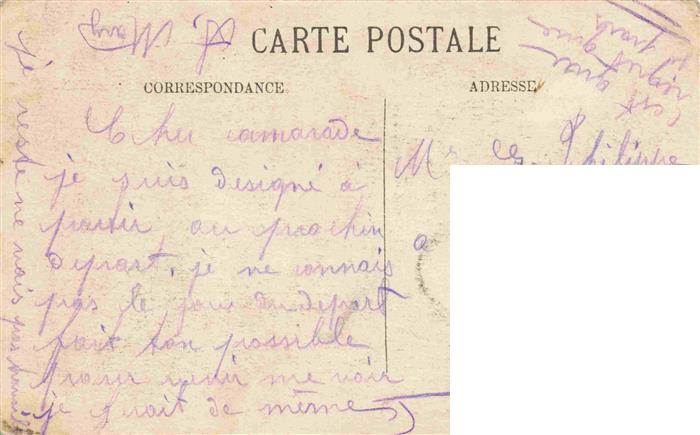 CARTE POSTALE
CORRESPONDANCE
ADRESSE
Cher camarade
je suis designé à
partir au prochin
depart, je ne connais
pas le jour du depart
fait ton possible
pour venir me voir
je frait de même
Mr G. Philippe
a
je reste ne vais pas
c'est que